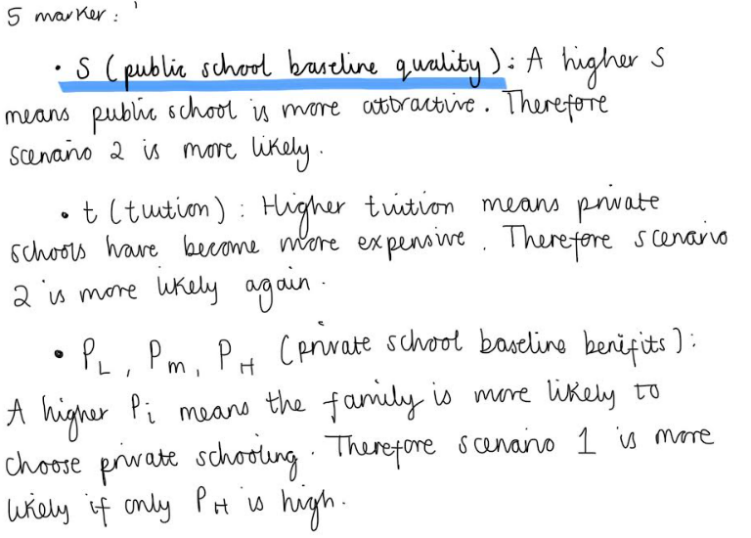 5 marker :
• S (public school baseline quality) : A higher S
means public school is more attractive. Therefore
scenario 2 is more likely.
• t (tuition) : Higher tuition means private
schools have become more expensive. Therefore scenario
2 is more likely again.
• PL, Pm, PH (private school baseline benifits) :
A higher Pi means the family is more likely to
choose private schooling. Therefore scenario 1 is more
likely if only PH is high.